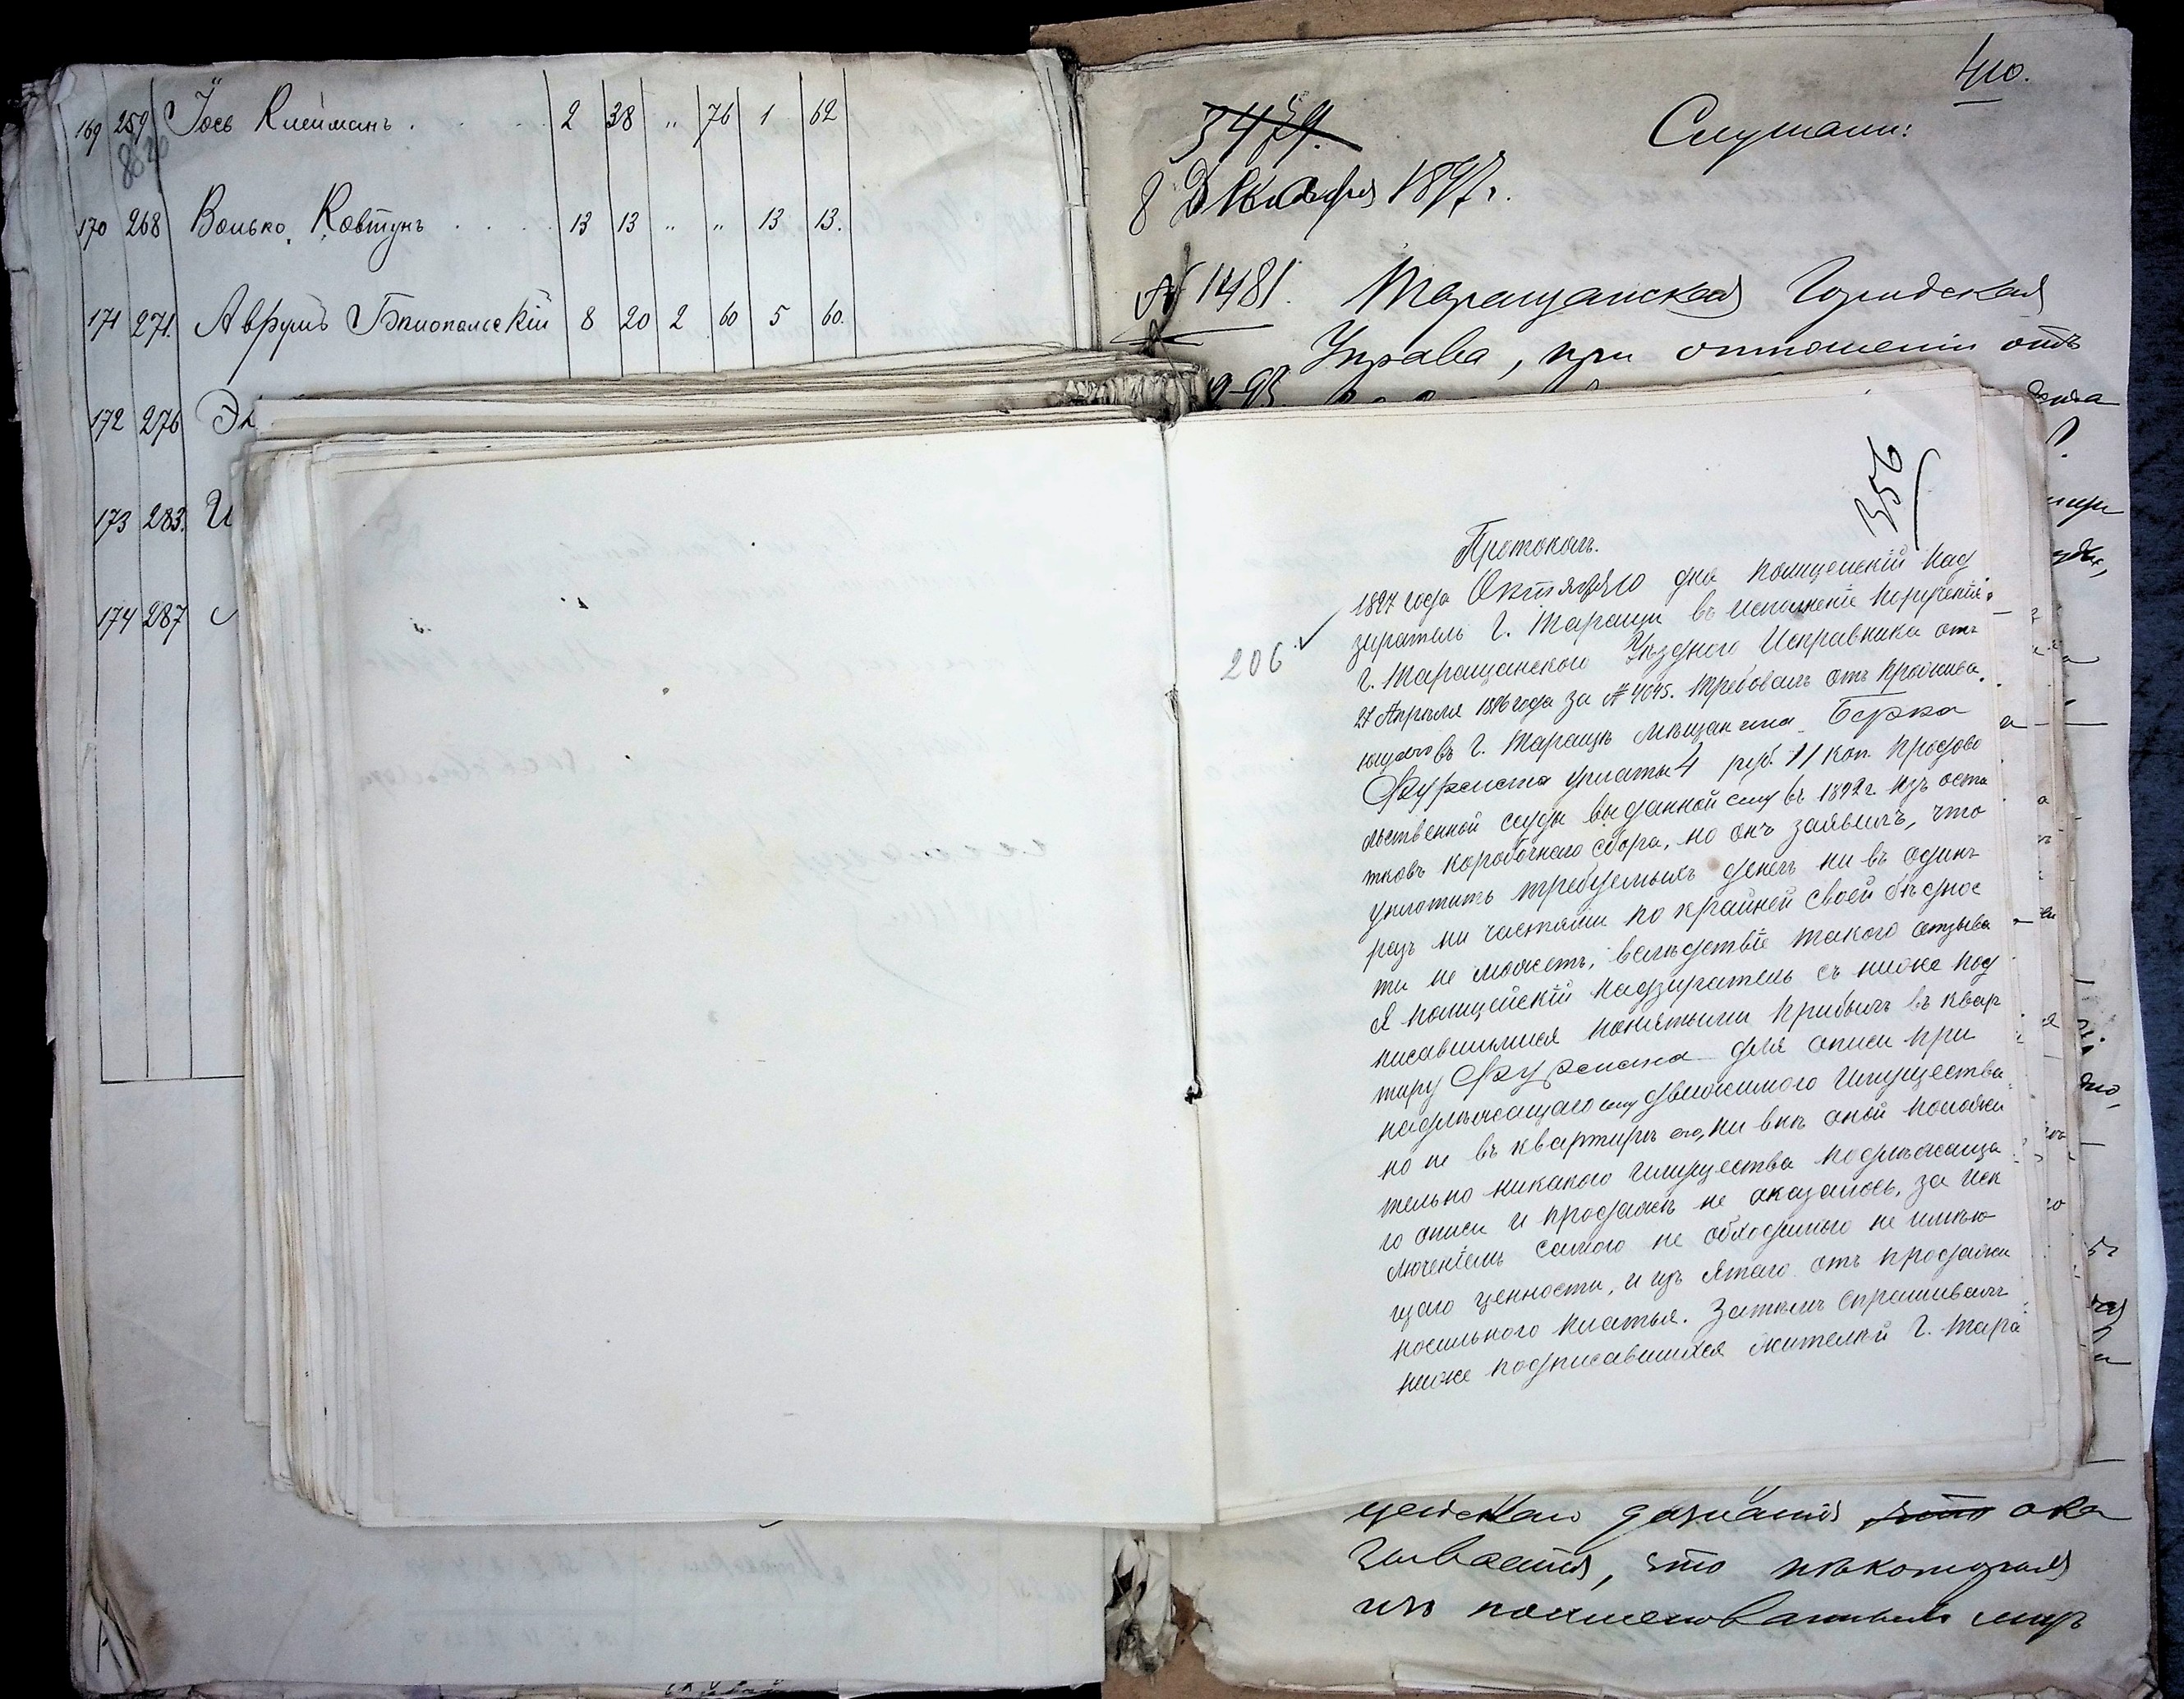 169 259 Іось Клейманъ . . . . 2 38 „ 76 1 62
170 268 Волько Ковтунъ . . . . 13 13 „ „ 13 13.
171 271. Аврумъ Бялопольскій 8 20 2 60 5 60.
172 276
173 283.
174 287
410.
3479.
Слушали:
8 Декабря 1897 г.
№ 1481. Таращанская Городская
Управа, при отношеніи отъ
356
Протоколъ.
206 ✓
1897 года Октября 10 дня Полицейскій Над
зиратель г. Таращи въ исполненіе порученія
г. Таращанского Уѣздного Исправника отъ
27 Апрѣля 1896 года за № 4045. требовалъ отъ прожива
ющаго въ г. Таращѣ мѣщанина Берка
Фурмана уплаты 4 руб. 11 коп. продово
льственной суды выданной ему въ 1892 г. изъ оста
тковъ коробочнаго сбора, но онъ заявилъ, что
уплотить требуемыхъ денегъ ни въ одинъ
разъ ни частями по крайней своей бѣднос
ти не можетъ, вслѣдствіе такого отзыва
я полицейскій надзиратель съ ниже под
писавшимися понятыми прибылъ въ квар
тиру для описи при
надлежащаго ему движимого имущества
но не въ квартирѣ его, ни внѣ оной положи
тельно никакого имущества подлежаща
го описи и продажѣ не оказалось, за иск
люченіемъ самого не обходимого не имѣю
щаго ценности, и изъ ятаго отъ продажи
носильного платья. Затемъ спрашивалъ
ниже подписавшихся жителей г. Тара
цейскаго дознанія что ока
зывается, что нѣкоторыя
изъ поименованныхъ лицъ